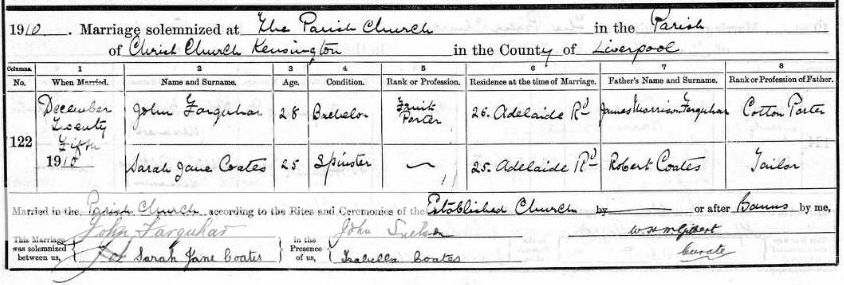 1910. Marriage solemnized at The Parish Church in the Parish
of Christ Church Kensington in the County of Liverpool
Columns. 1 2 3 4 5 6 7 8
No. When Married. Name and Surname. Age. Condition. Rank or Profession. Residence at the time of Marriage. Father's Name and Surname. Rank or Profession of Father.
122 December Twenty Fifth 1910 John Farquhar 28 Bachelor Fruit Porter 26. Adelaide Rd James Morrison Farquhar Cotton Porter
Sarah Jane Coates 25 Spinster ~ 25. Adelaide Rd Robert Coates Tailor
Married in the Parish Church according to the Rites and Ceremonies of the Established Church by — or after Banns by me,
This Marriage was solemnized between us, John Farquhar Sarah Jane Coates in the Presence of us, John Isabella Coates
Curate